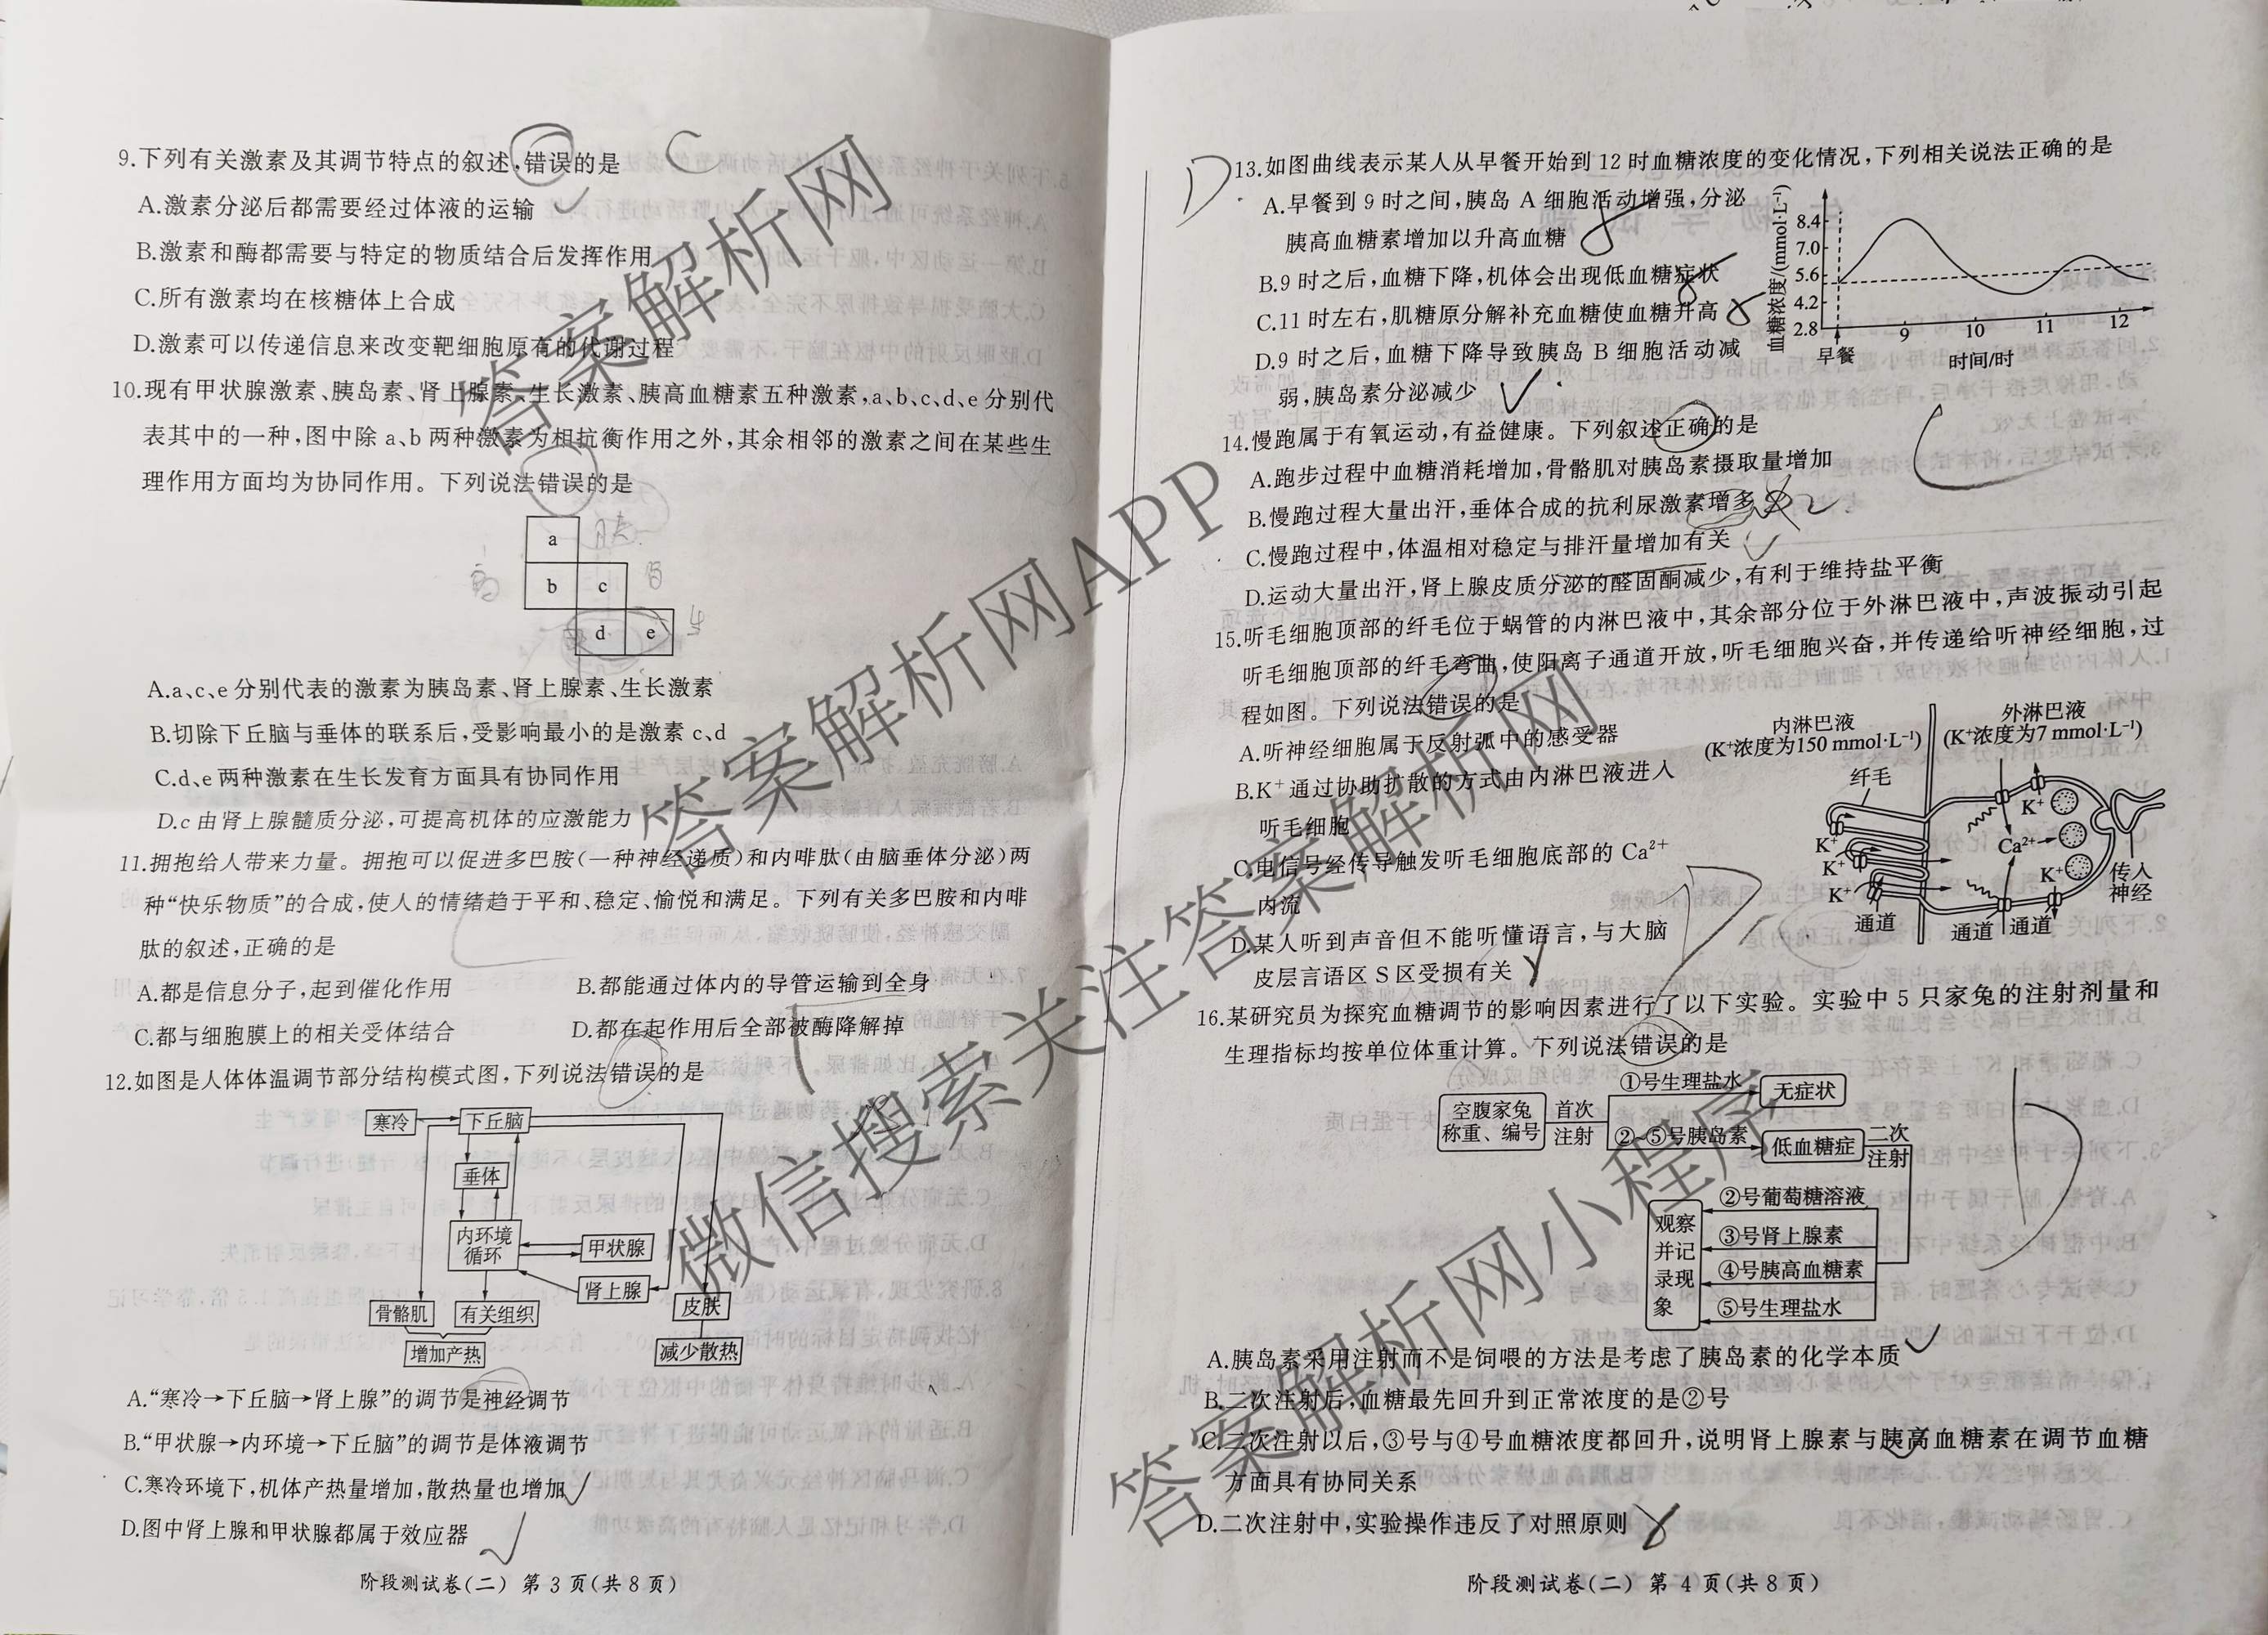 9.下列有关激素及其调节特点的叙述,错误的是
A.激素分泌后都需要经过体液的运输
B.激素和酶都需要与特定的物质结合后发挥作用
C.所有激素均在核糖体上合成
D.激素可以传递信息来改变靶细胞原有的代谢过程
10.现有甲状腺激素、胰岛素、肾上腺素、生长激素、胰高血糖素五种激素,a、b、c、d、e分别代
表其中的一种,图中除a、b两种激素为相抗衡作用之外,其余相邻的激素之间在某些生
理作用方面均为协同作用。下列说法错误的是
a
b
c
d
e
A.a、c、e分别代表的激素为胰岛素、肾上腺素、生长激素
B.切除下丘脑与垂体的联系后,受影响最小的是激素c、d
C.d、e两种激素在生长发育方面具有协同作用
D.c由肾上腺髓质分泌,可提高机体的应激能力
11.拥抱给人带来力量。拥抱可以促进多巴胺(一种神经递质)和内啡肽(由脑垂体分泌)两
种“快乐物质”的合成,使人的情绪趋于平和、稳定、愉悦和满足。下列有关多巴胺和内啡
肽的叙述,正确的是
A.都是信息分子,起到催化作用
B.都能通过体内的导管运输到全身
C.都与细胞膜上的相关受体结合
D.都在起作用后全部被酶降解掉
12.如图是人体体温调节部分结构模式图,下列说法错误的是
寒冷
下丘脑
垂体
内环境
循环
甲状腺
肾上腺
骨骼肌
有关组织
皮肤
增加产热
减少散热
A.“寒冷→下丘脑→肾上腺”的调节是神经调节
B.“甲状腺→内环境→下丘脑”的调节是体液调节
C.寒冷环境下,机体产热量增加,散热量也增加
D.图中肾上腺和甲状腺都属于效应器
阶段测试卷(二) 第3页(共8页)
13.如图曲线表示某人从早餐开始到12时血糖浓度的变化情况,下列相关说法正确的是
A.早餐到9时之间,胰岛A细胞活动增强,分泌
胰高血糖素增加以升高血糖
B.9时之后,血糖下降,机体会出现低血糖症状
C.11时左右,肌糖原分解补充血糖使血糖升高
D.9时之后,血糖下降导致胰岛B细胞活动减
弱,胰岛素分泌减少
血糖浓度/(mmol·L⁻¹)
8.4
7.0
5.6
4.2
2.8
9 10 11 12
早餐
时间/时
14.慢跑属于有氧运动,有益健康。下列叙述正确的是
A.跑步过程中血糖消耗增加,骨骼肌对胰岛素摄取量增加
B.慢跑过程大量出汗,垂体合成的抗利尿激素增多
C.慢跑过程中,体温相对稳定与排汗量增加有关
D.运动大量出汗,肾上腺皮质分泌的醛固酮减少,有利于维持盐平衡
15.听毛细胞顶部的纤毛位于蜗管的内淋巴液中,其余部分位于外淋巴液中,声波振动引起
听毛细胞顶部的纤毛弯曲,使阳离子通道开放,听毛细胞兴奋,并传递给听神经细胞,过
程如图。下列说法错误的是
A.听神经细胞属于反射弧中的感受器
B.K⁺通过协助扩散的方式由内淋巴液进入
听毛细胞
C.电信号经传导触发听毛细胞底部的Ca²⁺
内流
D.某人听到声音但不能听懂语言,与大脑
皮层言语区S区受损有关
内淋巴液
(K⁺浓度为150 mmol·L⁻¹)
外淋巴液
(K⁺浓度为7 mmol·L⁻¹)
纤毛
K⁺
K⁺
K⁺
K⁺
Ca²⁺
K⁺
传入
神经
通道
通道
通道
16.某研究员为探究血糖调节的影响因素进行了以下实验。实验中5只家兔的注射剂量和
生理指标均按单位体重计算。下列说法错误的是
空腹家兔
称重、编号
首次
注射
①号生理盐水
无症状
②~⑤号胰岛素
低血糖症
二次
注射
②号葡萄糖溶液
③号肾上腺素
④号胰高血糖素
⑤号生理盐水
观察
并记
录现
象
A.胰岛素采用注射而不是饲喂的方法是考虑了胰岛素的化学本质
B.二次注射后,血糖最先回升到正常浓度的是②号
C.二次注射以后,③号与④号血糖浓度都回升,说明肾上腺素与胰高血糖素在调节血糖
方面具有协同关系
D.二次注射中,实验操作违反了对照原则
阶段测试卷(二) 第4页(共8页)
答案解析网
答案解析网APP
微信搜索关注答案解析网
答案解析网小程序